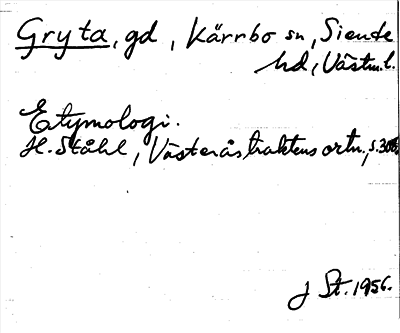 Gryta, gd, Kärrbo sn, Siende
hd, Västm.l.
Etymologi.
H. Ståhl, Västeråstraktens ortn., s.
J St. 1956.